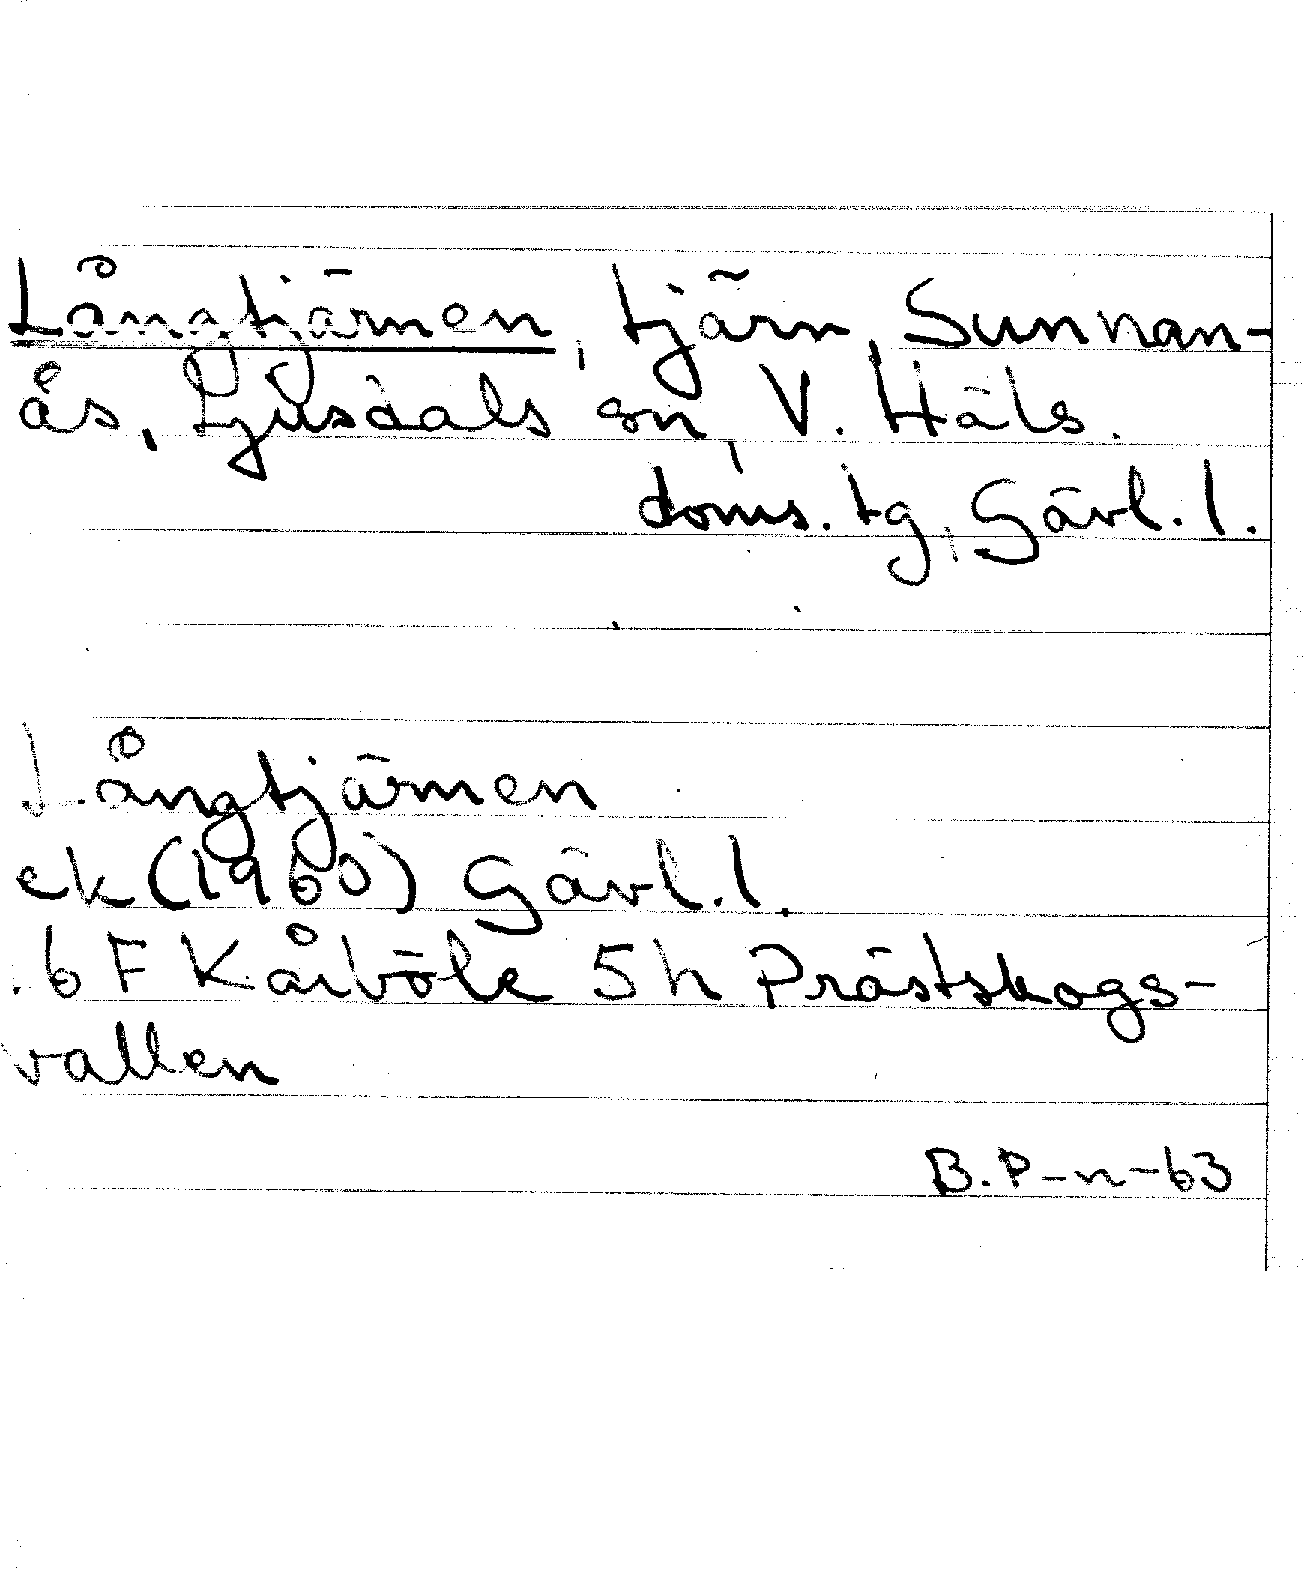 Långtjärnen, tjärn, Sunnan-
ås, Ljusdals sn, V. Häls.
doms. tg, Gävl. l.
Långtjärnen
ek (1960) Gävl. l.
16 F Kårböle 5h Prästskogs-
vallen
B. P-n-63